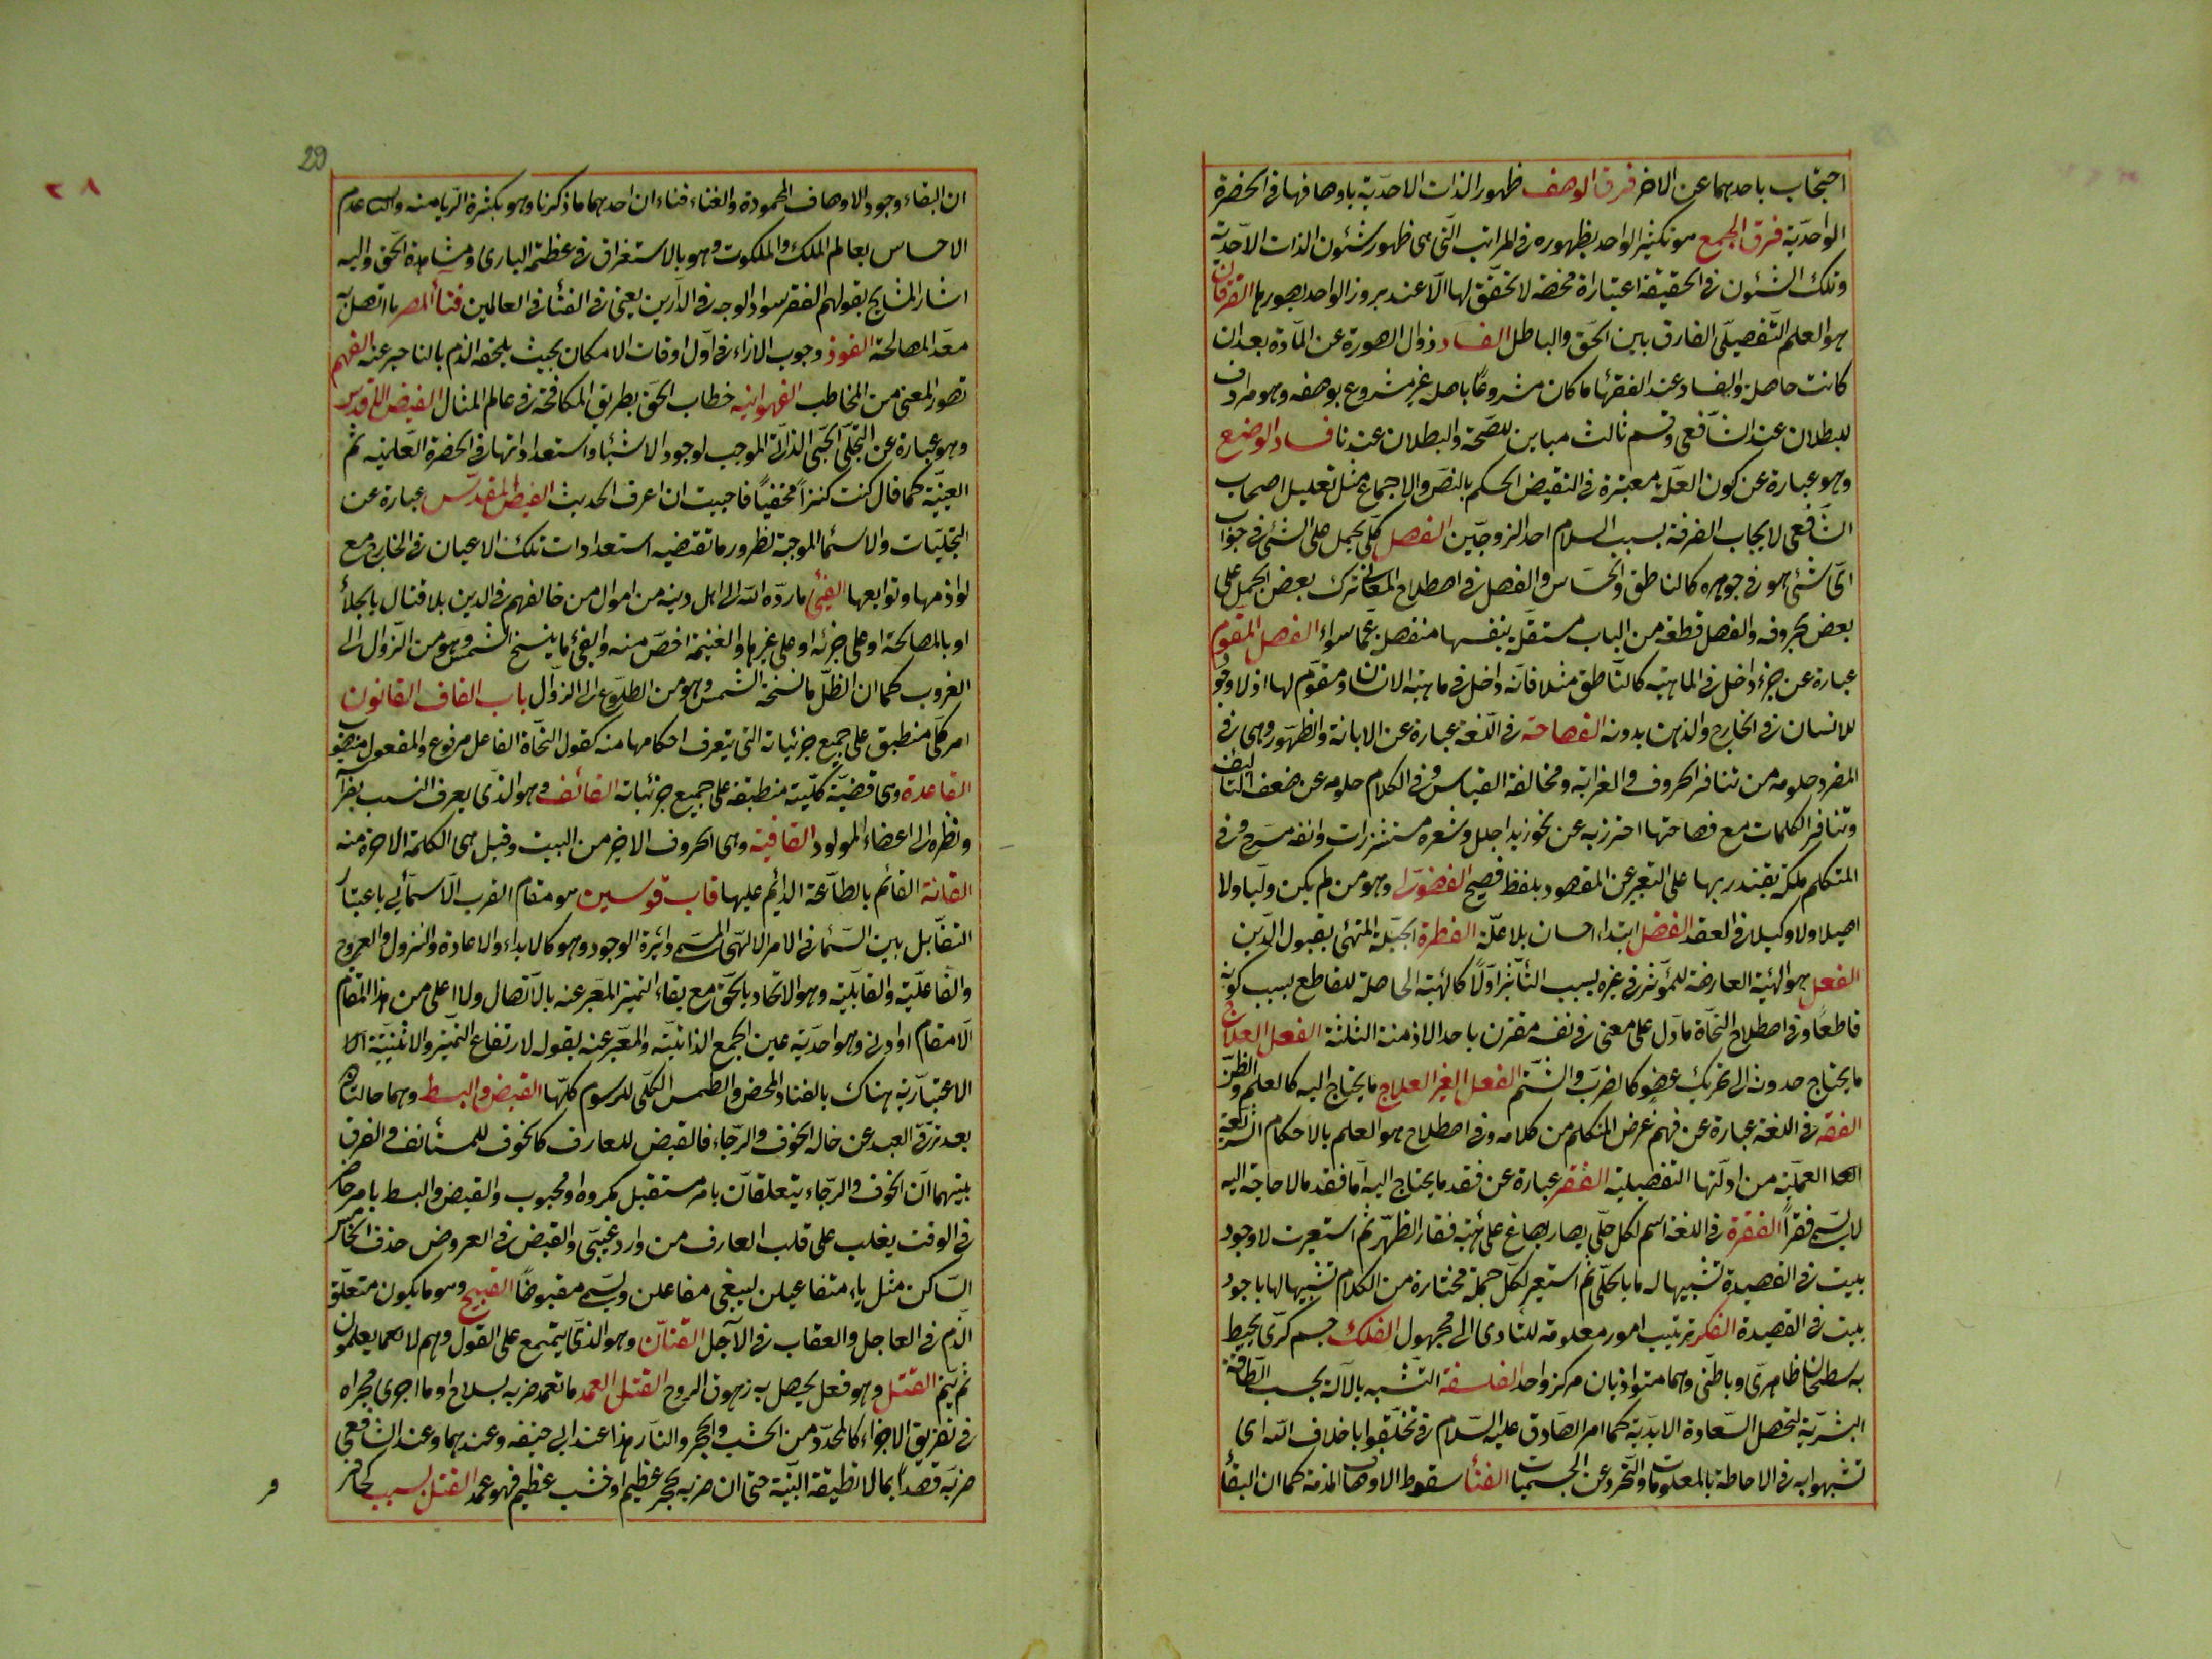 احتجاب باحدهما عن الاخر فرق الوصف ظهور الذات الاحدية باوصافها فى الحضرة
الواحدية فرق الجمع هو تكثير الواحد بظهوره فى المراتب التى هى ظهور شئون الذات الاحدية
وتلك الشئون فى الحقيقة اعتباراة محضة لا تحقق لها الا عند بروز الواحد بصورها الفرقان
هو العلم التفصيلى الفارق بين الحق والباطل الفساد زوال الصورة عن المادة بعد ان
كانت حاصلة والفساد عند الفقها ما كان مشروعا باصله غير مشروع بوصفه وهو مرادف
للبطلان عند الشافعى وقسم ثالث مباين للصحة والبطلان عندنا فساد الوضع
وهو عبارة عن كون العلة معتبرة فى النقيض الحكم بالنص والاجماع مثل تعليل اصحاب
الشافعى لايجاب الفرقة بسبب السلام احد الزوجين الفصل كلى يحمل على الشئ فى جواب
اى شئ هو فى جوهره كالناطق والحساس والفصل فى اصطلاح المعانى ترك بعض الجمل على
بعض بحروفه والفصل قطعة من الباب مستقلة بنفسها منفصلة عما سواه الفصل المقوم
عبارة عن جزء داخل فى الماهية كالناطق مثلا فانه داخل فى ماهية الانسان ومقوم لها اذ لا وجود
للانسان فى الخارج والذهن بدونه الفصاحة فى اللغة عبارة عن الابانة والظهور وهى فى
المفرد خلوصه من تنافر الحروف والغرابة ومخالفة القياس وفى الكلام خلوصه عن ضعف التاليف
وتنافر الكلمات مع فصاحتها احترز به عن نحو زيد اجلل وشعره مستشزرات وانفه مسرج وفى
المتكلم ملكة يقتدر بها على التعبير عن المقصود بلفظ فصيح الفضولى وهو من لم يكن وليا ولا
اصيلا ولا وكيلا فى العقد الفضل ابتداء احسان بلا علة الفطرة الجبلة المتهئ بقبول الدين
الفعل هو الهيئة العارضة للمؤثر فى غيره بسبب التأثير اولا كالهيئة الحاصلة للقاطع بسبب كونه
قاطعا وفى اصطلاح النحاة ما دل على معنى فى نفسه مقترن باحد الازمنة الثلثة الفعل العلاج
ما يحتاج حدوثه الى تحريك عضو كالضرب والشتم الفعل الغير العلاج ما يحتاج اليه كالعلم والظن
الفقه فى اللغة عبارة عن فهم غرض المتكلم من كلامه وفى اصطلاح هو العلم بالاحكام الشرعية
العملية من ادلتها التفصيلية الفقر عبارة عن فقد ما يحتاج اليه اما فقد ما لا حاجة اليه
لا يسمى فقرا الفقرة فى اللغة اسم لكل حلى يصاغ على هيئة فقار الظهر ثم استعيرت لاجود
بيت فى القصيدة تشبيها له بالحلى ثم استعير لكل جملة مختارة من الكلام تشبيها لها باجود
بيت فى القصيدة الفكر ترتيب امور معلومة للتادى الى مجهول الفلك جسم كرى يحيط
به سطحان ظاهرى وباطنى وهما متوازيان مركز واحد الفلسفة التشبه بالآله بحسب الطاقة
البشرية لتحصل السعادة الابدية كما امر الصادق عليه السلام فى تخلقوا باخلاق الله اى
تشبهوا به فى الاحاطة بالمعلومات والتجرد عن الجسميات الفنأ سقوط الاوصاف المذمة كما ان البقأ
29
٢٨
ان البقاء وجود الاوصاف المحمودة والفناء فناءان احدهما ما ذكرنا وهو بكثرة الريامنه والثانى عدم
الاحساس بعالم الملك والملكوت وهو بالاستغراق فى عظمة البارى ومشاهدة الحق واليه
اشار المشايخ بقولهم الفقر سواد الوجه فى الدارين يعنى فى الفنأ فى العالمين فنأ المصر ما اتصل به
معد المصالحة الفور وجوب الاداء فى اول اوقات الامكان بحيث يلحقه الذم بالتاخير عنه الفهم
تصور المعنى من المخاطب الفهوانية خطاب الحق بطريق المكافحة فى عالم المثال الفيض الاقدس
وهو عبارة عن التجلى الحبى الذاتى الموجب لوجود الاشياء واستعداداتها فى الحضرة العلمية ثم
العينية كما قال كنت كنزا مخفيا فاحببت ان اعرف الحديث الفيض المقدس عبارة عن
التجليات والاسماء الموجبة لظهور ما تقتضيه استعدادات تلك الاعيان فى الخارج مع
لوازمها وتوابعها الفئ ما رده الله الى اهل دينه من اموال من خالفهم فى الدين بلا قتال بالجلأ
او بالمصالحة او على جزئه او على غيرها والغنيمة اخص منه والفئ ما ينسخ الشمس وهو من الزوال الى
الغروب كما ان الظل ما نسخته الشمس وهو من الطلوع الى الزوال باب القاف القانون
امر كلى منطبق على جميع جزئياته التى يتعرف احكامها منه كقول النحاة الفاعل مرفوع والمفعول منصوب
القاعدة وهى قضية كلية منطبقة على جميع جزئياته القائف وهو الذى يعرف النسب بفرا
ونظره الى اعضاء المولود القافية وهى الحروف الاخير من البيت وقيل هى الكلمة الاخيرة منه
القانة القائم بالطاعة الدائم عليها قاب قوسين هو مقام القرب الاسمائى باعتبار
التقابل بين السماء فى الامر الالهى المسمى دائرة الوجود وهو كالابداء والاعادة والنزول والعروج
والفاعلية والقابلية وهو الاتحاد بالحق مع بقاء التميز المعبر عنه بالاتصال ولا اعلى من هذا المقام
الا مقام او ادنى وهو احدية عين الجمع الذاتية والمعبر عنه بقوله لارتفاع التميز والاثنينية
الاعتبارية هناك بالفناء المحض والطمس الكلى للرسوم كلها القبض والبسط وهما حالتان
بعد ترقى العبد عن حاله الخوف والرجاء فالقبض للعارف كالخوف للمستأنف والفرق
بينهما ان الخوف والرجاء يتعلقان بامر مستقبل مكروه او محبوب والقبض والبسط بامر حاضر
فى الوقت يغلب على قلب العارف من وارد غيبى والقبض فى العروض حذف الخامس
الساكن مثل ياء مفاعيلن ليبقى مفاعلن ويسمى مقبوضا القبيح وهو ما يكون متعلق
الذم فى العاجل والعقاب فى الآجل القتات وهو الذى يتمع على القول وهم لا يعلمون
ثم ينم القتل وهو فعل يحصل به زهوق الروح القتل العمد ما تعمد ضربه بسلاح او ما اجرى مجراه
فى تفريق الاجزاء كالمحدد من الخشب والحجر والنار هذا عند ابى حنيفه وعندهما وعند الشافعى
ضربه قصدا بما لا تطيقه البنية حتى ان ضربه بحجر عظيم او خشب عظيم فهو عمد القتل بسبب كحافر